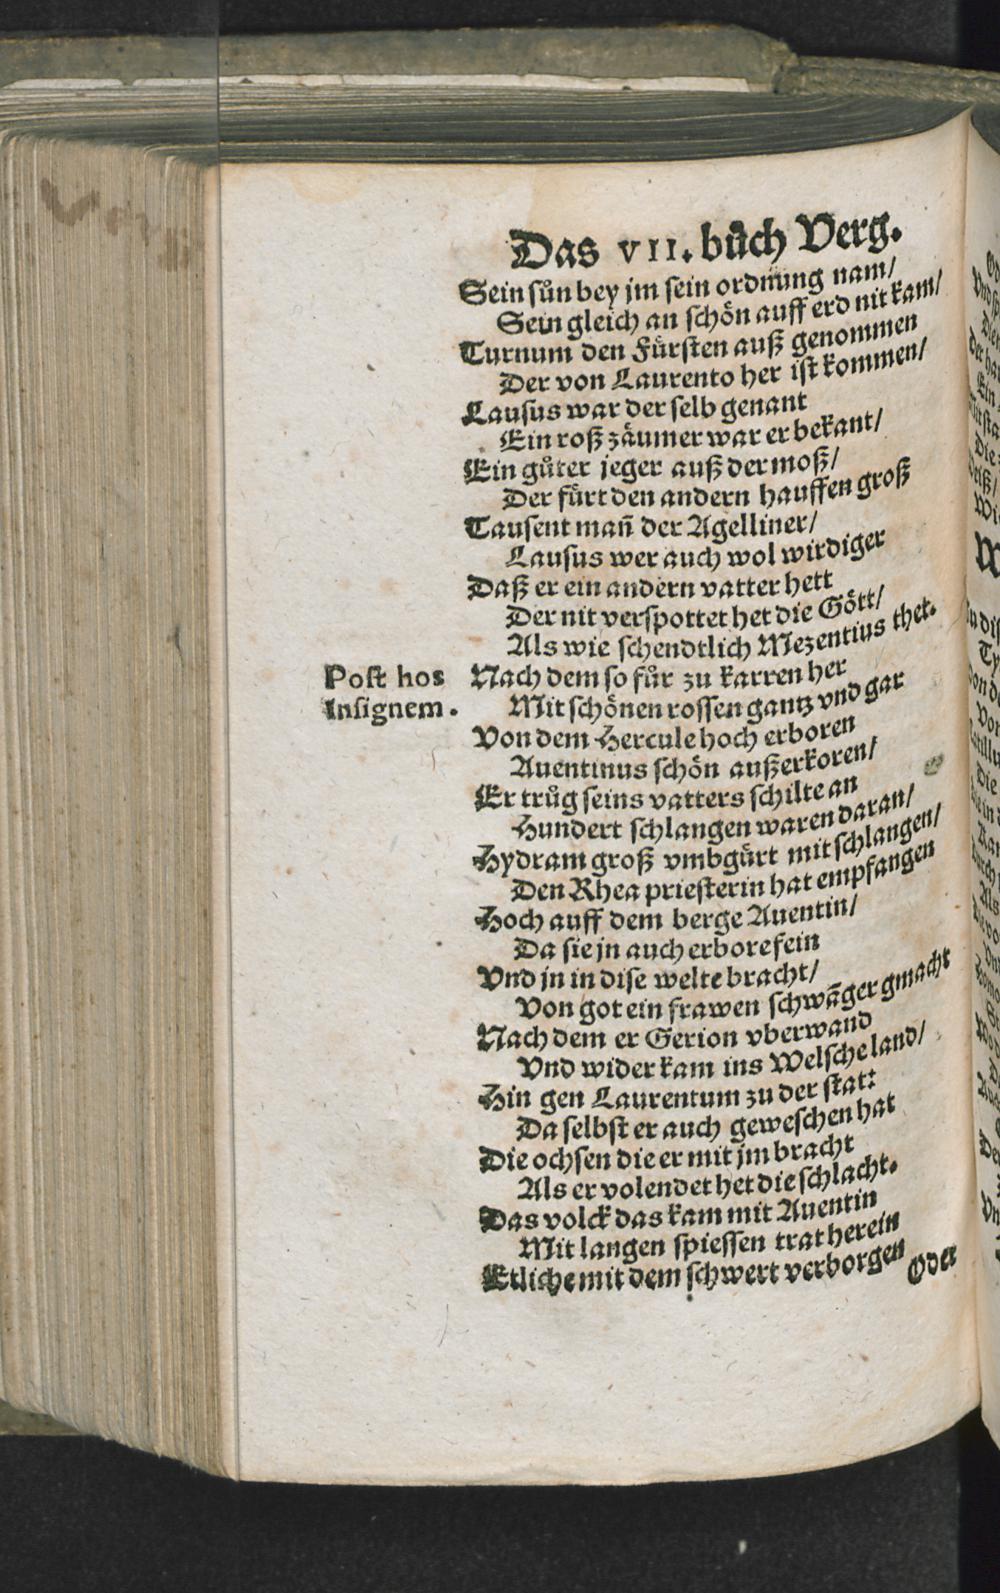 Das VII. bůch Verg.
Sein sůn bey jm sein ordnung nam/
Sein gleich an schön auff erd nit kam/
Turnum den Fürsten auß genommen
Der von Laurento her ist kommen/
Lausus war der selb genant
Ein roß zäumer war er bekant/
Ein gůter jeger auß der moß/
Der fürt den andern hauffen groß
Tausent mañ der Agelliner/
Lausus wer auch wol wirdiger
Daß er ein andern vatter hett
Der nit verspottet het die Gött/
Als wie schendtlich Mezentius thet.
Post hos
Insignem.
Nach dem so fůr zu karren her
Mit schönen rossen gantz vnd gar
Von dem Hercule hoch erboren
Auentinus schön außerkoren/
Er trůg seins vatters schilte an
Hundert schlangen waren daran/
Hydram groß vmbgürt mit schlangen/
Den Rhea priesterin hat empfangen
Hoch auff dem berge Auentin/
Da sie jn auch erbore fein
Vnd jn in dise welte bracht/
Von got ein frawen schwãger gmacht
Nach dem er Gerion vberwand
Vnd wider kam ins Welsche land/
Hin gen Laurentum zu der stat:
Da selbst er auch geweschen hat
Die ochsen die er mit jm bracht
Als er volendet het die schlacht.
Das volck das kam mit Auentin
Mit langen spiessen trat herein
Etliche mit dem schwert verborgen
Oder